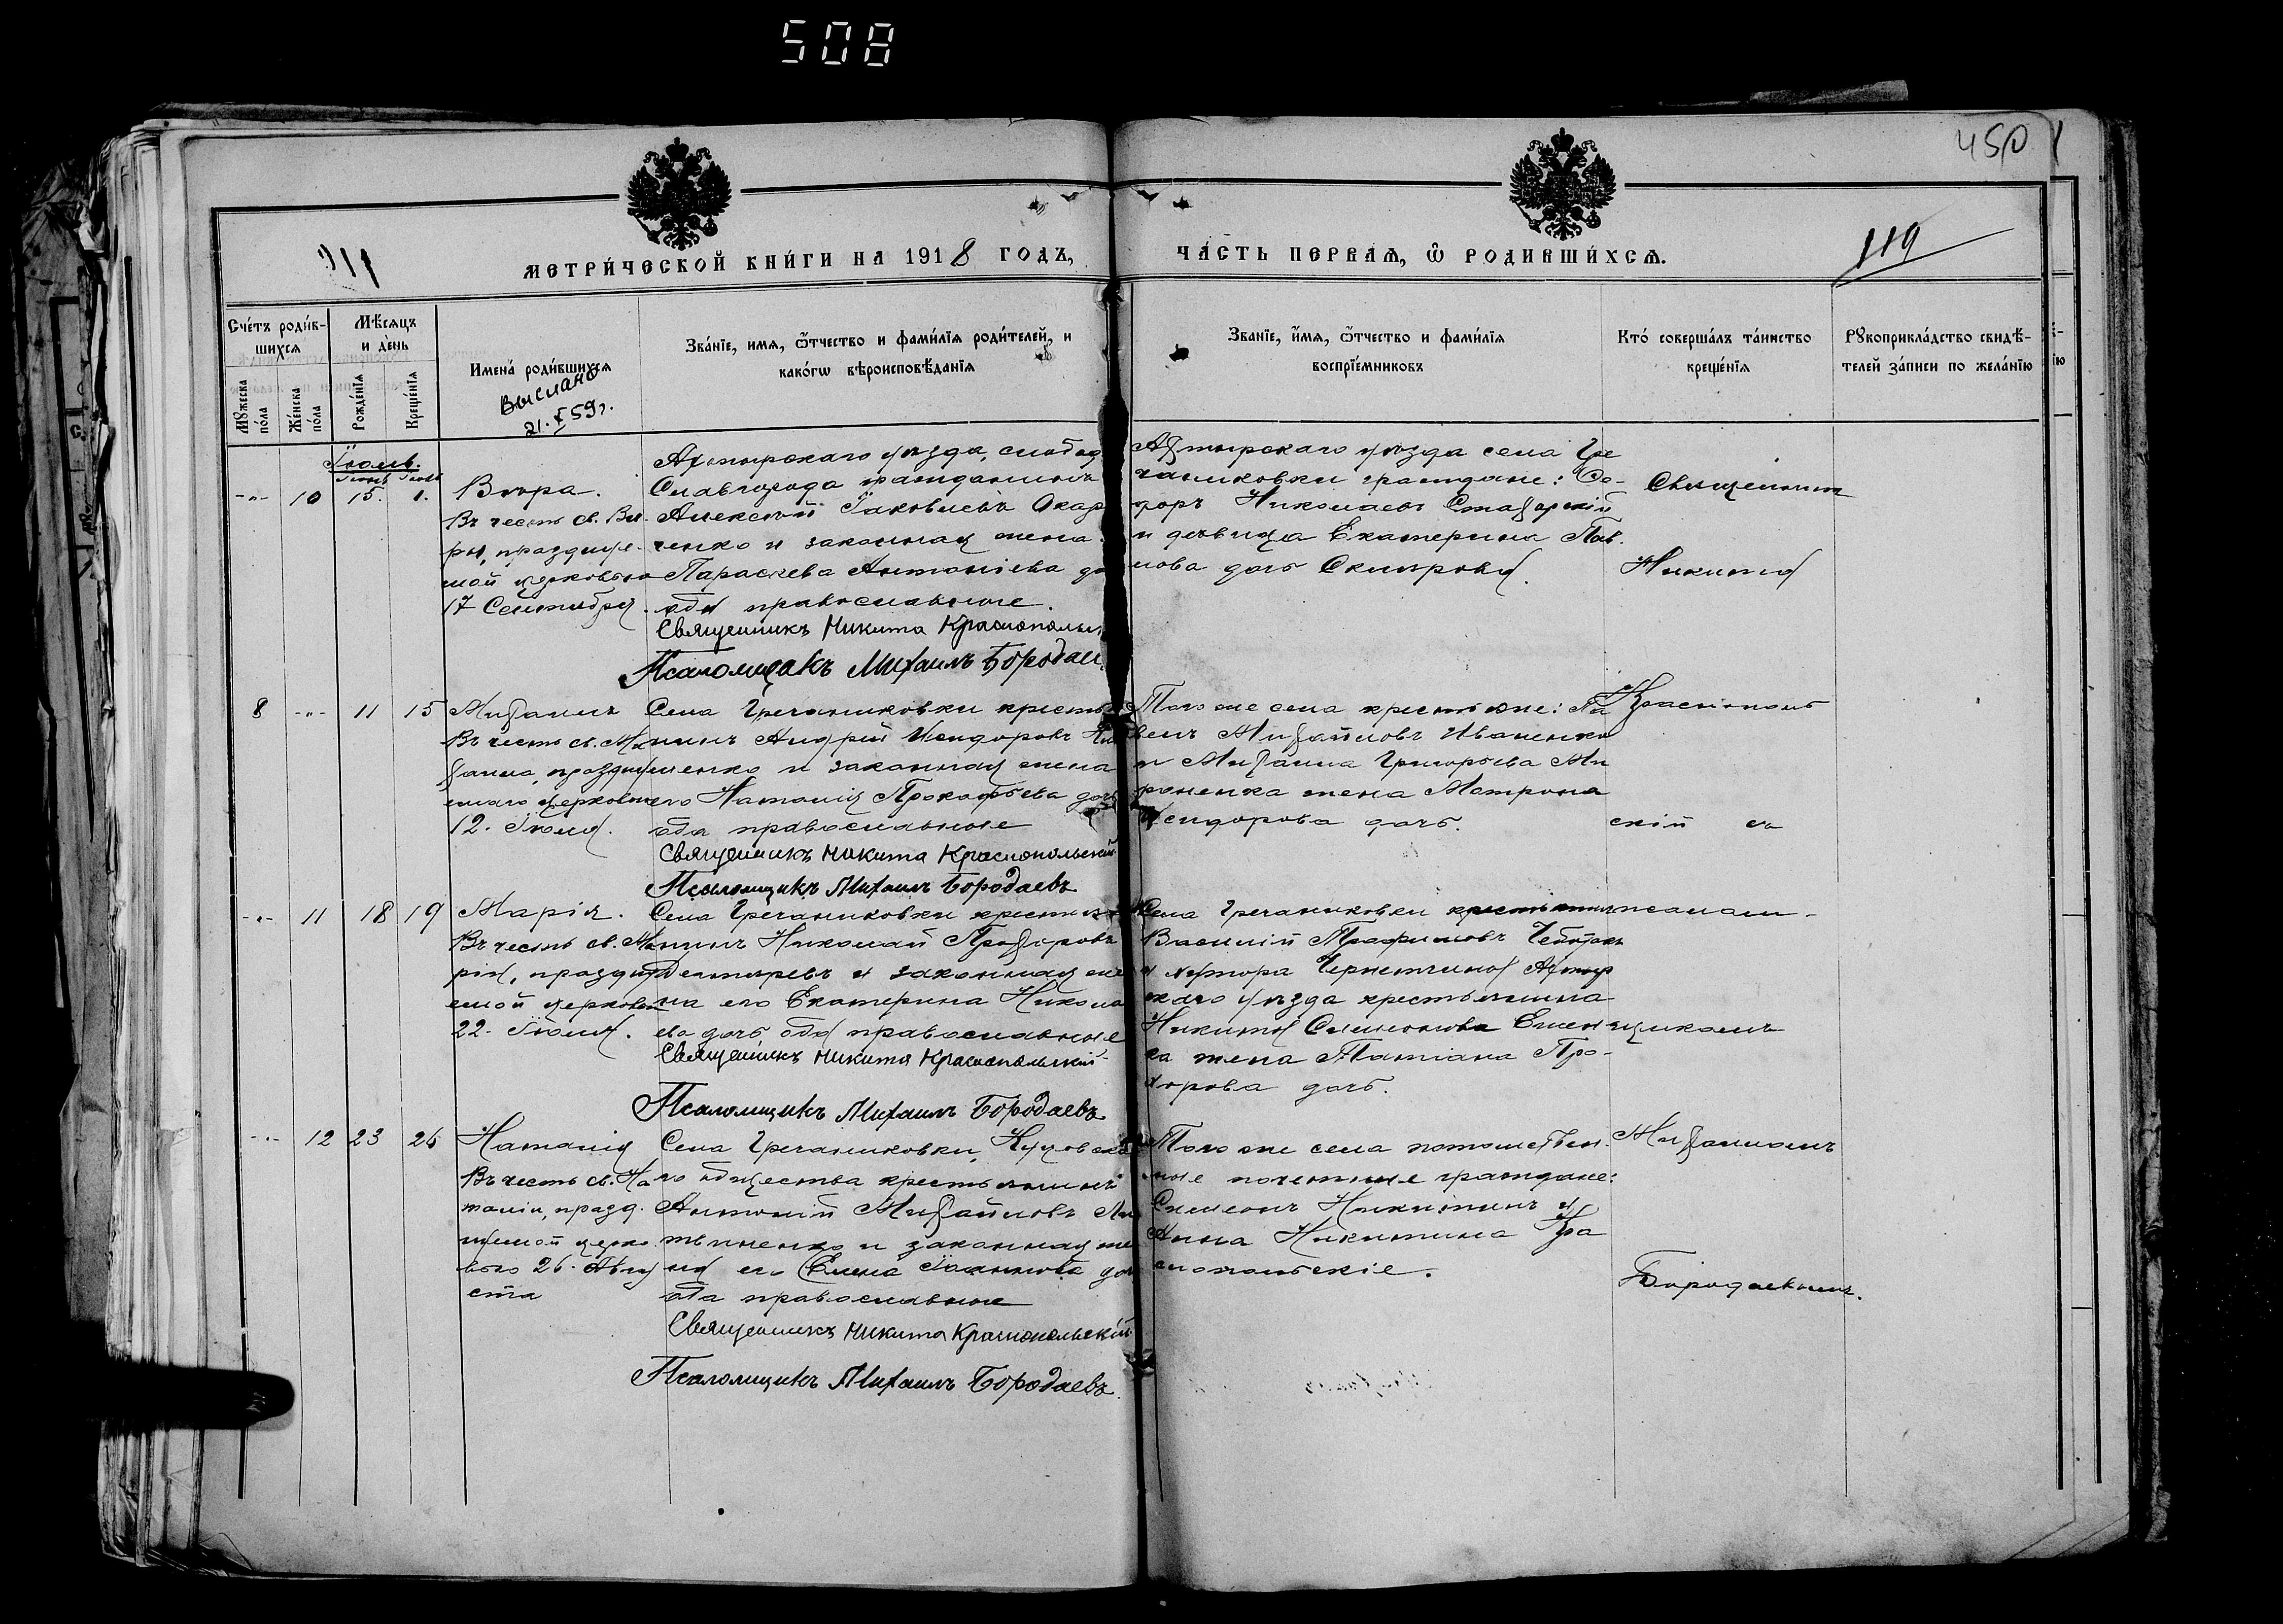 508
450
119
МЕТРИ́ЧЕСКОЙ КНИ́ГИ НА 1918 ГОДЪ,
ЧА́СТЬ ПЕРВАЯ, Ѡ РОДИВШИ́ХСЯ.
Сче́тъ роди́в-
шихся
Мѣ́сяцъ
и де́нь
Имена́ роди́вшихся
Зва́нїе, имя, ѻ҆́тчество и фами́лїя роди́телей, и
како́гѡ вѣроисповѣ́данїя
Зва́нїе, и҆́мя, ѻ҆́тчество и фами́лїя
воспрїе́мниковъ
Кто́ соверша́лъ та́инство
креще́нїя
Рꙋкоприкла́дство свидѣ́-
телей за́писи по жела́нїю
Мꙋжеска
по́ла
Же́нска
по́ла
Рожде́нїя
Креще́нїя
Выслано
21. X 59 г.
Іюль.
10 15. 1. Вѣра.
Въ честь св. Вѣ-
ры, праздуе-
мой церковью
17 Сентября.
Ахтырскаго уѣзда, слобод
Славгорода гражданинъ
Алексѣй Іаковлевъ
ченко и законная жена
Параскева Антоніева
оба православные.
Священникъ Никита Краснополь
Псаломщикъ Михаилъ Бородаев
Ахтырскаго уѣзда села Гре
чаниковки граждане: Ѳе-
доръ Николаевъ
и дѣвица Екатерина Пав
лова дочь
Священник
Никита
8 11 15 Михаилъ
Въ честь св. Ми
хаила, праздуе
маго церковью
12. Іюля.
Села Гречаниковки крестья
нинъ Андрей Исидоровъ
ненко и законная жена
его Наталія Прокофьева дочь
оба православные
Священникъ Никита Краснопольскій
Псаломщикъ Михаилъ Бородаевъ
Того же села крестьяне: Па
велъ Михайловъ Иваненко
и Михаила Григорьева Ми
роненка жена Матрона
Исидорова дочь.
Краснополь
скій съ
11 18 19 Марія.
Въ честь св. Ма
ріи, праздуе
емой церковью
22. Іюля.
Села Гречаниковки крестья
нинъ Николай Прохоровъ
Дехтяревъ и законная же
на его Екатерина Никола
ева дочь оба православные
Священникъ Никита Краснопольскій
Псаломщикъ Михаилъ Бородаевъ
Села Гречаниковки крестьянинъ
Василій Трофимовъ Чеботарь
и хутора Чернетчина Ахтыр
скаго уѣзда крестьянина
Никиты Симеонова
жена Татіана Про-
хорова дочь.
псалом-
щикомъ
12 23 26 Наталія
Въ честь св. На
таліи, празд.
уемой церко
вью 26. Авгу
ста
Села Гречаниковки,
го общества крестьянинъ
Антоній Михайловъ Ли
твиненко и законная же
на его Елена дочь
оба православные
Священникъ Никита Краснопольскій
Псаломщикъ Михаилъ Бородаевъ.
Того же села потомствен
ные почетные граждане:
Симеонъ Никитинъ и
Анна Никитина Кра
снопольскіе.
Михаиломъ
Бородаевымъ.